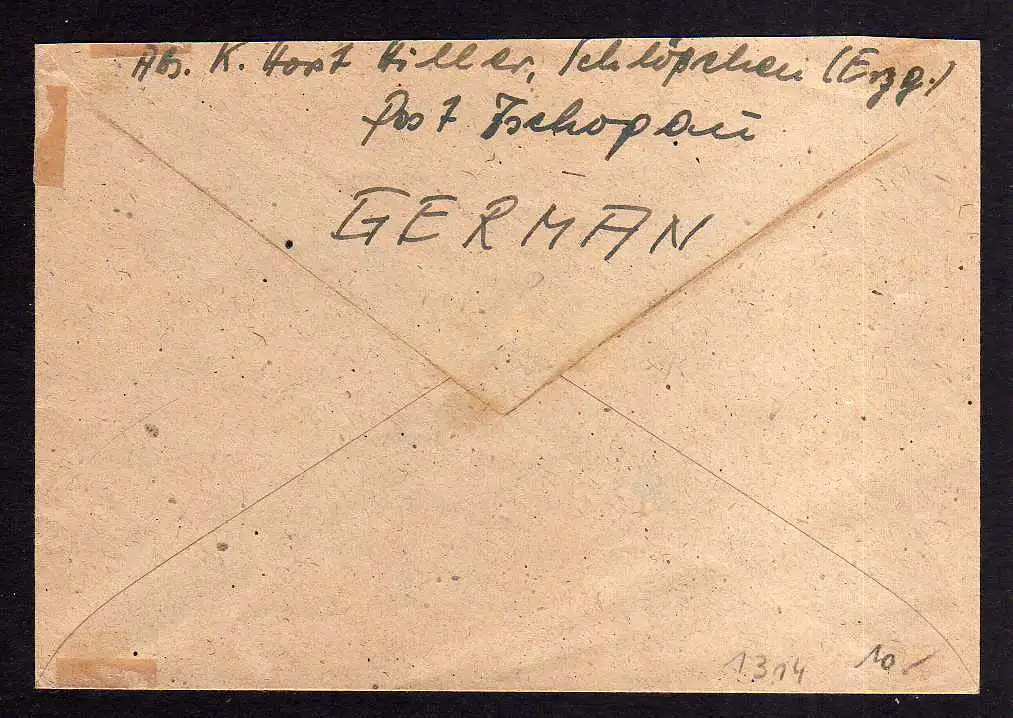 Abs. K. Horst Hiller, Schlößchen (Erzg.)
Post Zschopau
GERMAN
1314 10,-